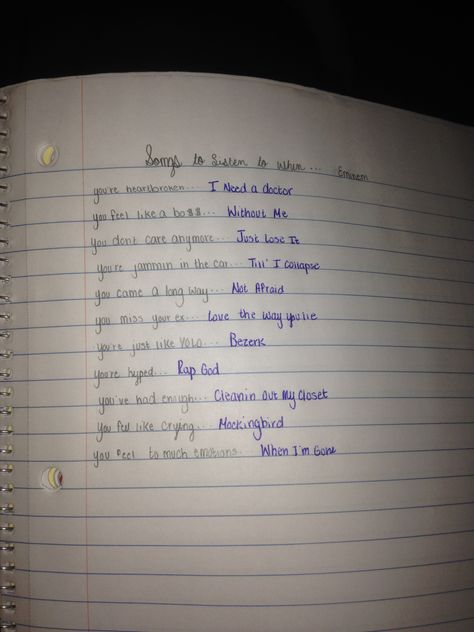 Songs to listen to when... Eminem
you're heartbroken... I Need a doctor
you feel like a bo$$... Without Me
you don't care anymore... Just Lose It
you're jammin in the car... Till' I Collapse
you came a long way... Not Afraid
you miss your ex... Love the way you lie
you're just like YOLO... Bezerk
you're hyped... Rap God
you've had enough... Cleanin Out My Closet
you feel like crying... Mockingbird
you feel to much emotions... When I'm Gone